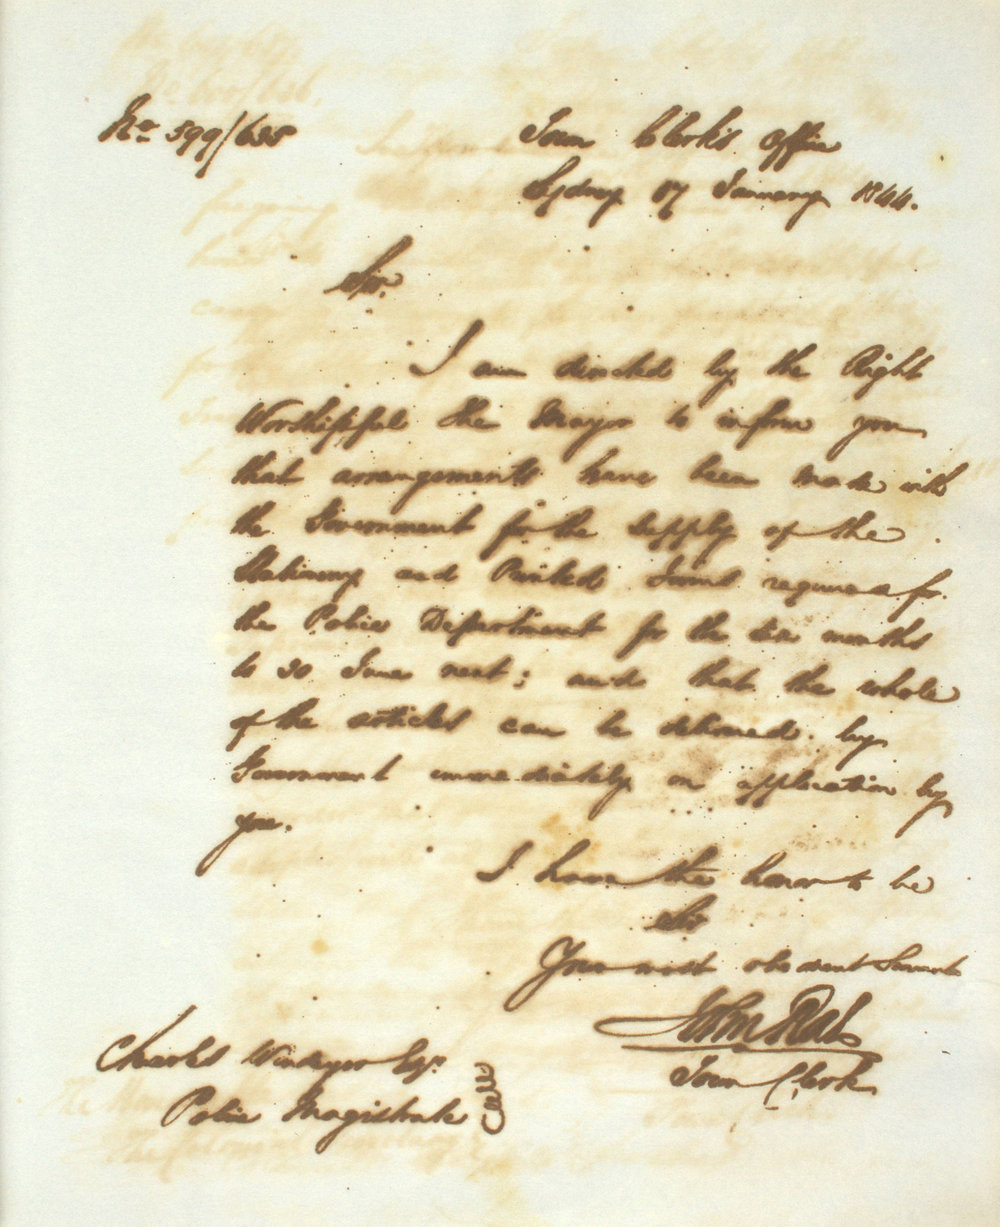 No 599/638
Town Clerk's Office
Sydney 17 January 1844.
Sir,
I am directed by the Right
Worshipful the Mayor to inform you
that arrangements have been made with
the Government for the supply of the
Stationery and Printed Forms required for
the Police Department for the six months
to 30 June next; and that the whole
of the articles can be obtained by
Government immediately on application by
you.
I have the honor to be
Sir
Your most obedient Servant
John Rae
Town Clerk
Charles Windeyer Esqr.
Police Magistrate